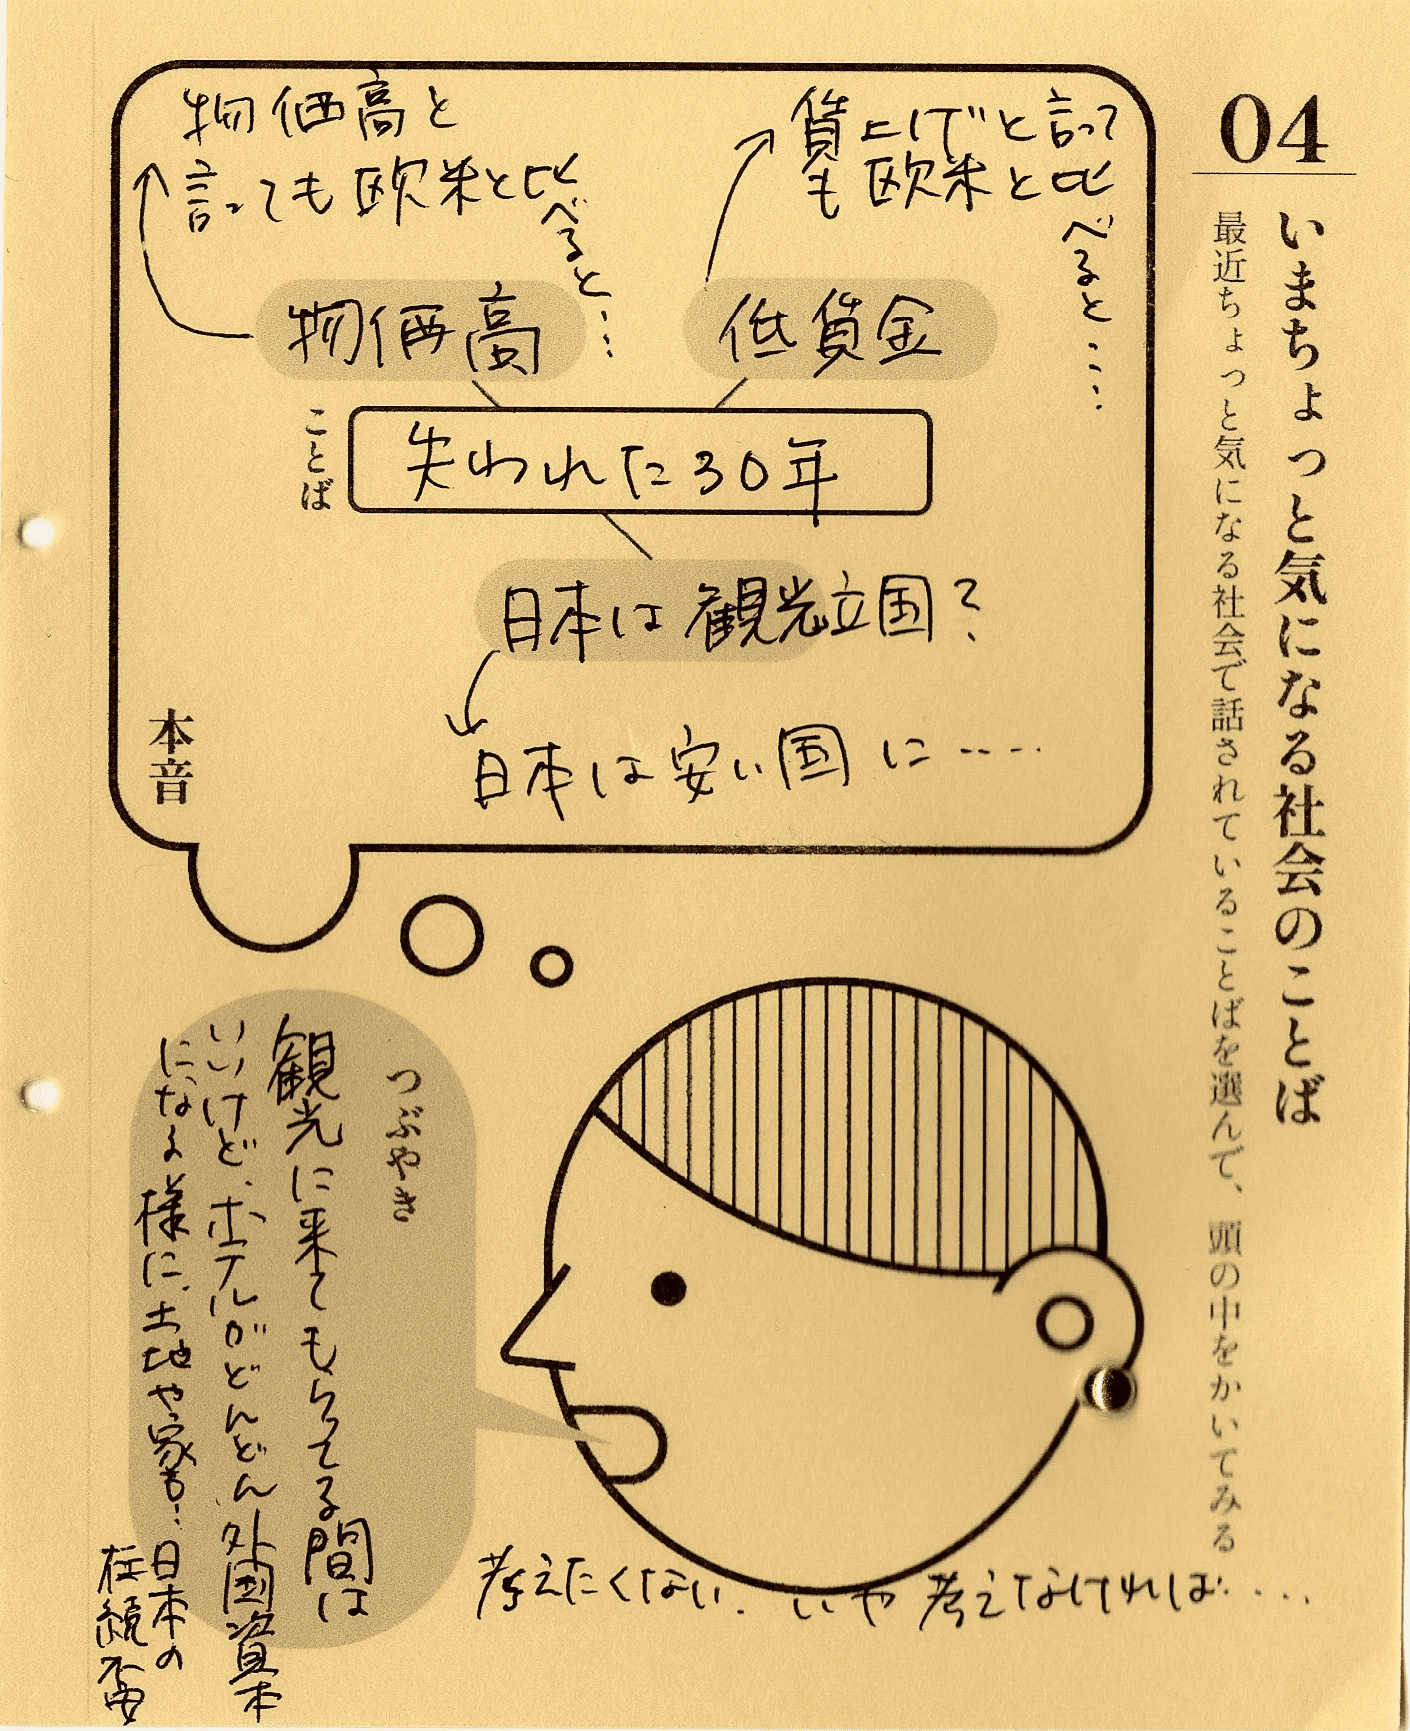 04
いまちょっと気になる社会のことば
最近ちょっと気になる社会で話されていることばを選んで、頭の中をかいてみる
賃上げと言って
も欧米と比
べると……
物価高と
言っても欧米と比
べると……
物価高
低賃金
ことば
失われた30年
日本は観光立国?
日本は安い国に……
本音
つぶやき
観光に来てもらってる間は
いいけど、ホテルがどんどん外国資本
になる様に、土地や家も…日本の
存続
考えたくない、いや考えなければ……